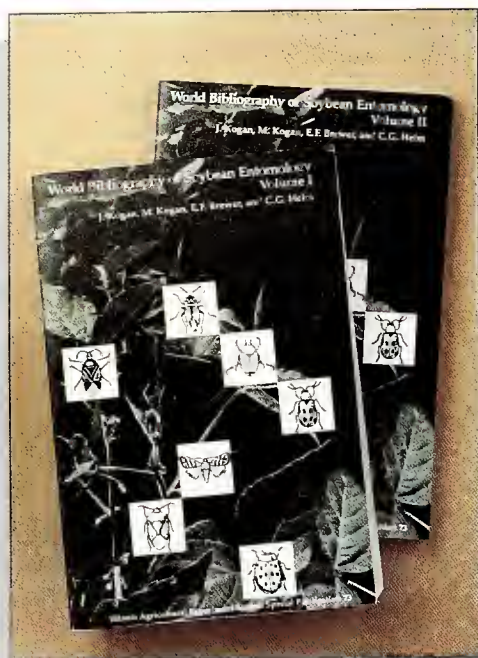 World Bibliography of Soybean Entomology
Volume II
J. Kogan, M. Kogan, E.F. Brewer, and C.G. Helm
World Bibliography of Soybean Entomology
Volume I
J. Kogan, M. Kogan, E.F. Brewer, and C.G. Helm
73
Illinois Agricultural Special Publication 73